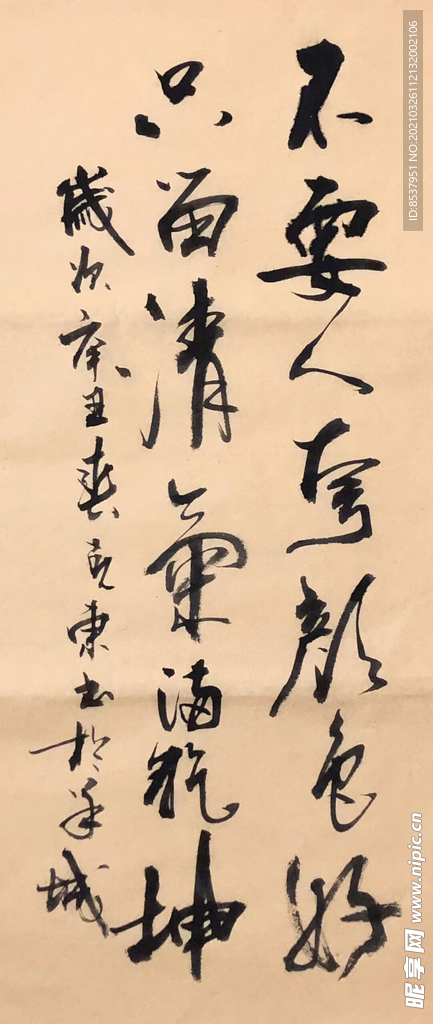 不要人夸顏色好
只留清氣滿乾坤
歲次丑春克東书於羊城
ID:8537951 NO:20210326112132002106
昵享网 www.nipic.cn